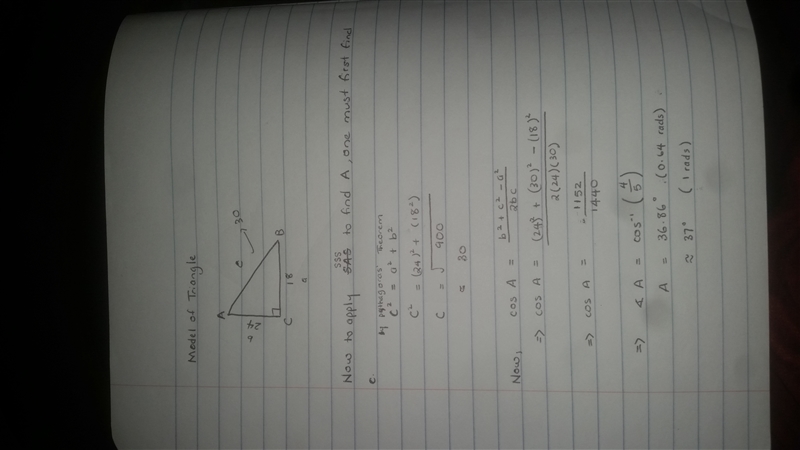 Model of Triangle
A
c → 30
b 24
B
C 18
a
SSS
Now to apply SAS to find A, one must first find
c.
c² = a² + b²
C² = (24)² + (18²)
C = √900
= 30
Now, cos A = b² + c² - a² / 2bc
=> cos A = (24)² + (30)² - (18)² / 2(24)(30)
=> cos A = 1152 / 1440
=> ∡ A = cos⁻¹ (4/5)
A = 36.86° (0.64 rads).
≈ 37° (1 rads)